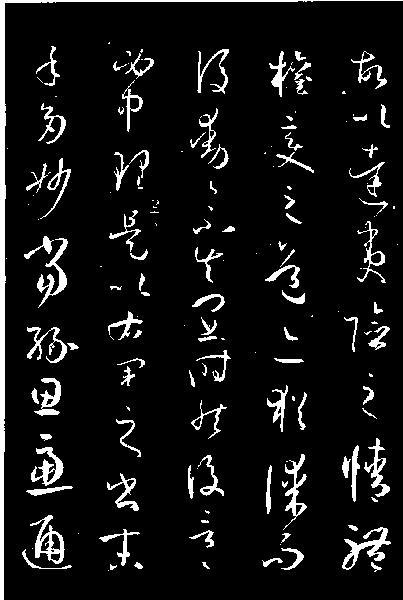 故以達夷險之情體
權變之道亦猶謀而
後動〻不失宜時然後言〻
必中理矣是以右軍之書末
年多妙當緣思慮通